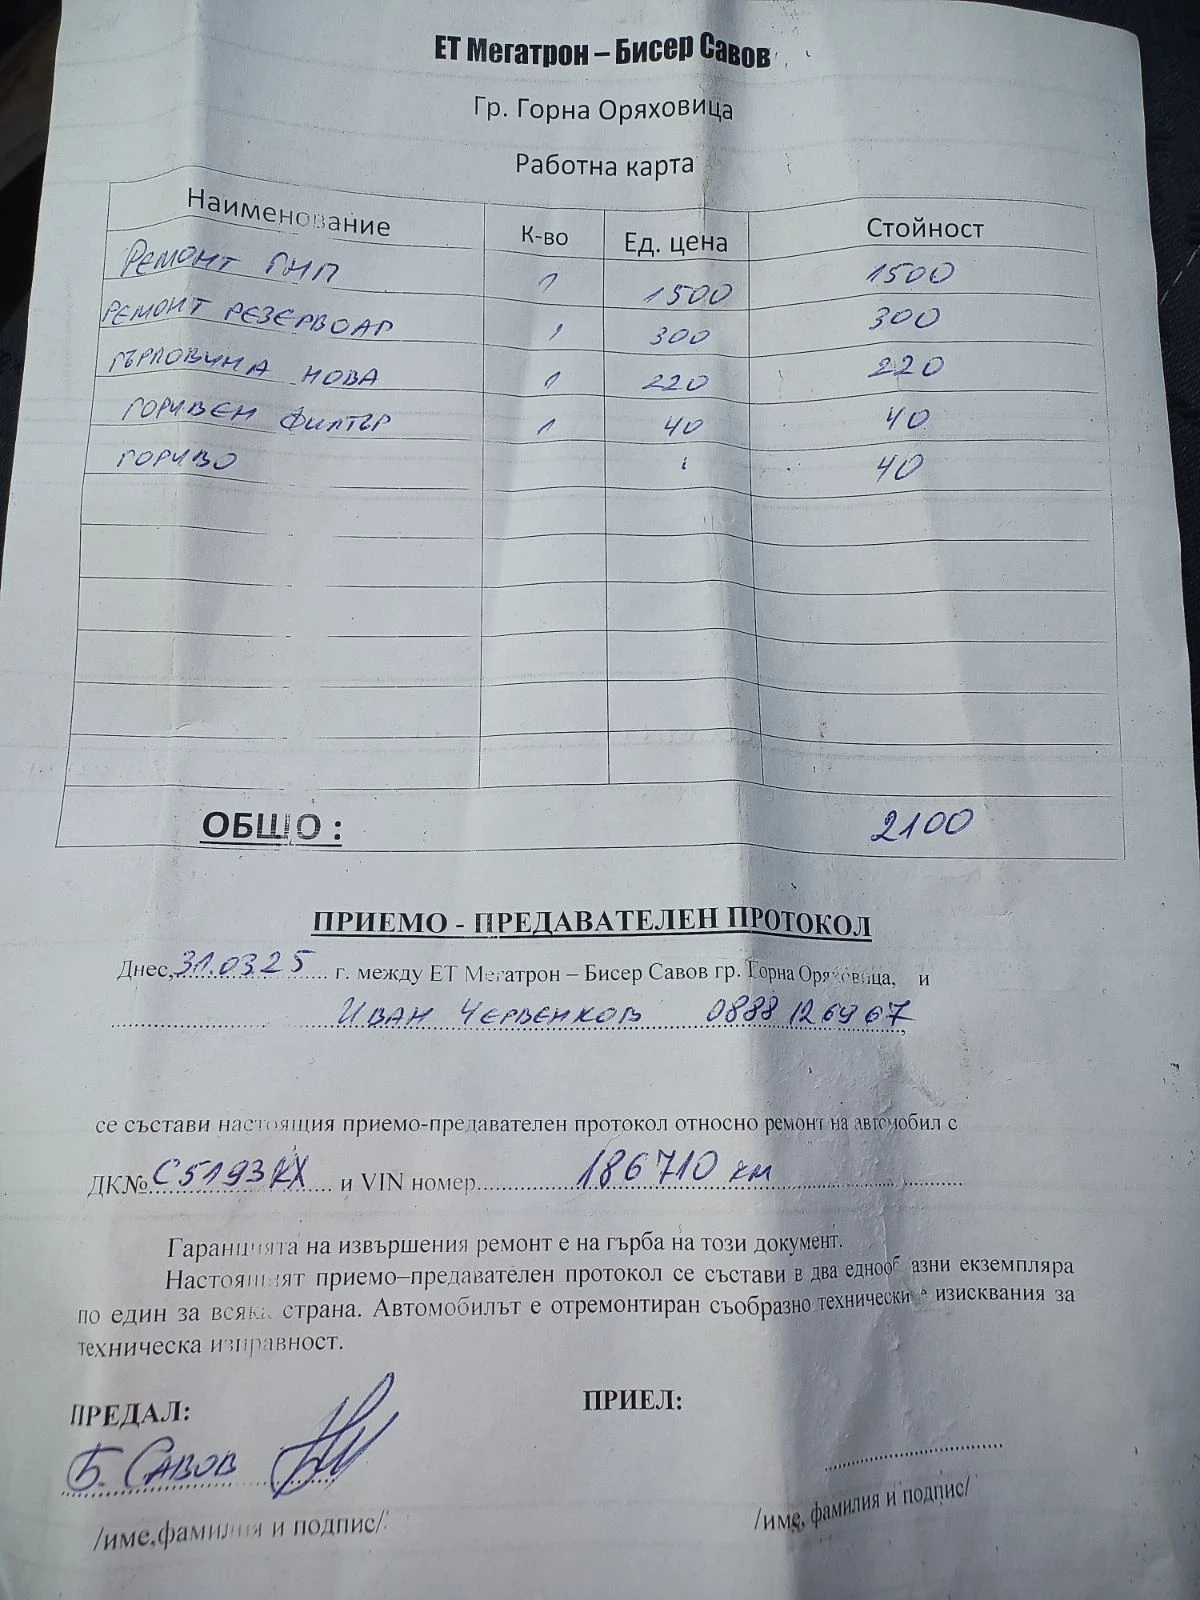 ЕТ Мегатрон – Бисер Савов
Гр. Горна Оряховица
Работна карта
Наименование К-во Ед. цена Стойност
РЕМОНТ ГНП 1 1500 1500
РЕМОНТ РЕЗЕРВОАР 1 300 300
ГЪРЛОВИНА НОВА 1 220 220
ГОРИВЕН ФИЛТЪР 1 40 40
ГОРИВО 40
ОБЩО : 2100
ПРИЕМО - ПРЕДАВАТЕЛЕН ПРОТОКОЛ
Днес, 31.03.25 г. между ЕТ Мегатрон – Бисер Савов гр. Горна Оряховица, и
ИВАН ЧЕРВЕНКОВ 0888 126967,
се състави настоящия приемо-предавателен протокол относно ремонт на автомобил с
ДК№ С5193КХ и VIN номер 186710 км
Гаранцията на извършения ремонт е на гърба на този документ.
Настоящият приемо–предавателен протокол се състави в два еднообразни екземпляра
по един за всяка страна. Автомобилът е отремонтиран съобразно техническите изисквания за
техническа изправност.
ПРЕДАЛ: ПРИЕЛ:
Б. САВОВ
/име,фамилия и подпис/ /име, фамилия и подпис/